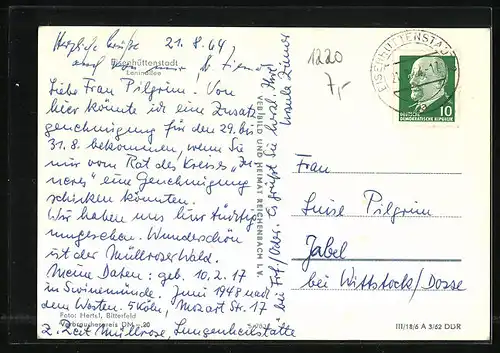 Herzliche Grüße 21.8.64
auch von mir
Eisenhüttenstadt
Leninallee
Liebe Frau Pilgrim. Von
hier könnte ich eine Zusatz
genehmigung für den 29. bis
31.8. bekommen, wenn Sie
mir vom Rat des Kreises "In-
neres" eine Genehmigung
schicken könnten.
Wir haben uns hier tüchtig
umgesehen. Wunderschön
ist der Müllroser Wald.
Meine Daten: geb. 10.2.17
in Swinemünde. Juni 1948 nach
dem Westen. 5 Köln, Mozart Str. 17
Foto: Hertel, Bitterfeld
Verbraucherpreis DM -,20
z. Zeit Müllrose, Lungenheilstätte
bei Frf/Oder. Es grüßt Sie herzl. Ihre
Ursula
VEB BILD UND HEIMAT REICHENBACH I. V.
1220
7,-
EISENHÜTTENSTADT
10
DEUTSCHE
DEMOKRATISCHE REPUBLIK
Frau
Luise Pilgrim
Jabel
bei Wittstock/Dosse
III/18/6 A 3/62 DDR